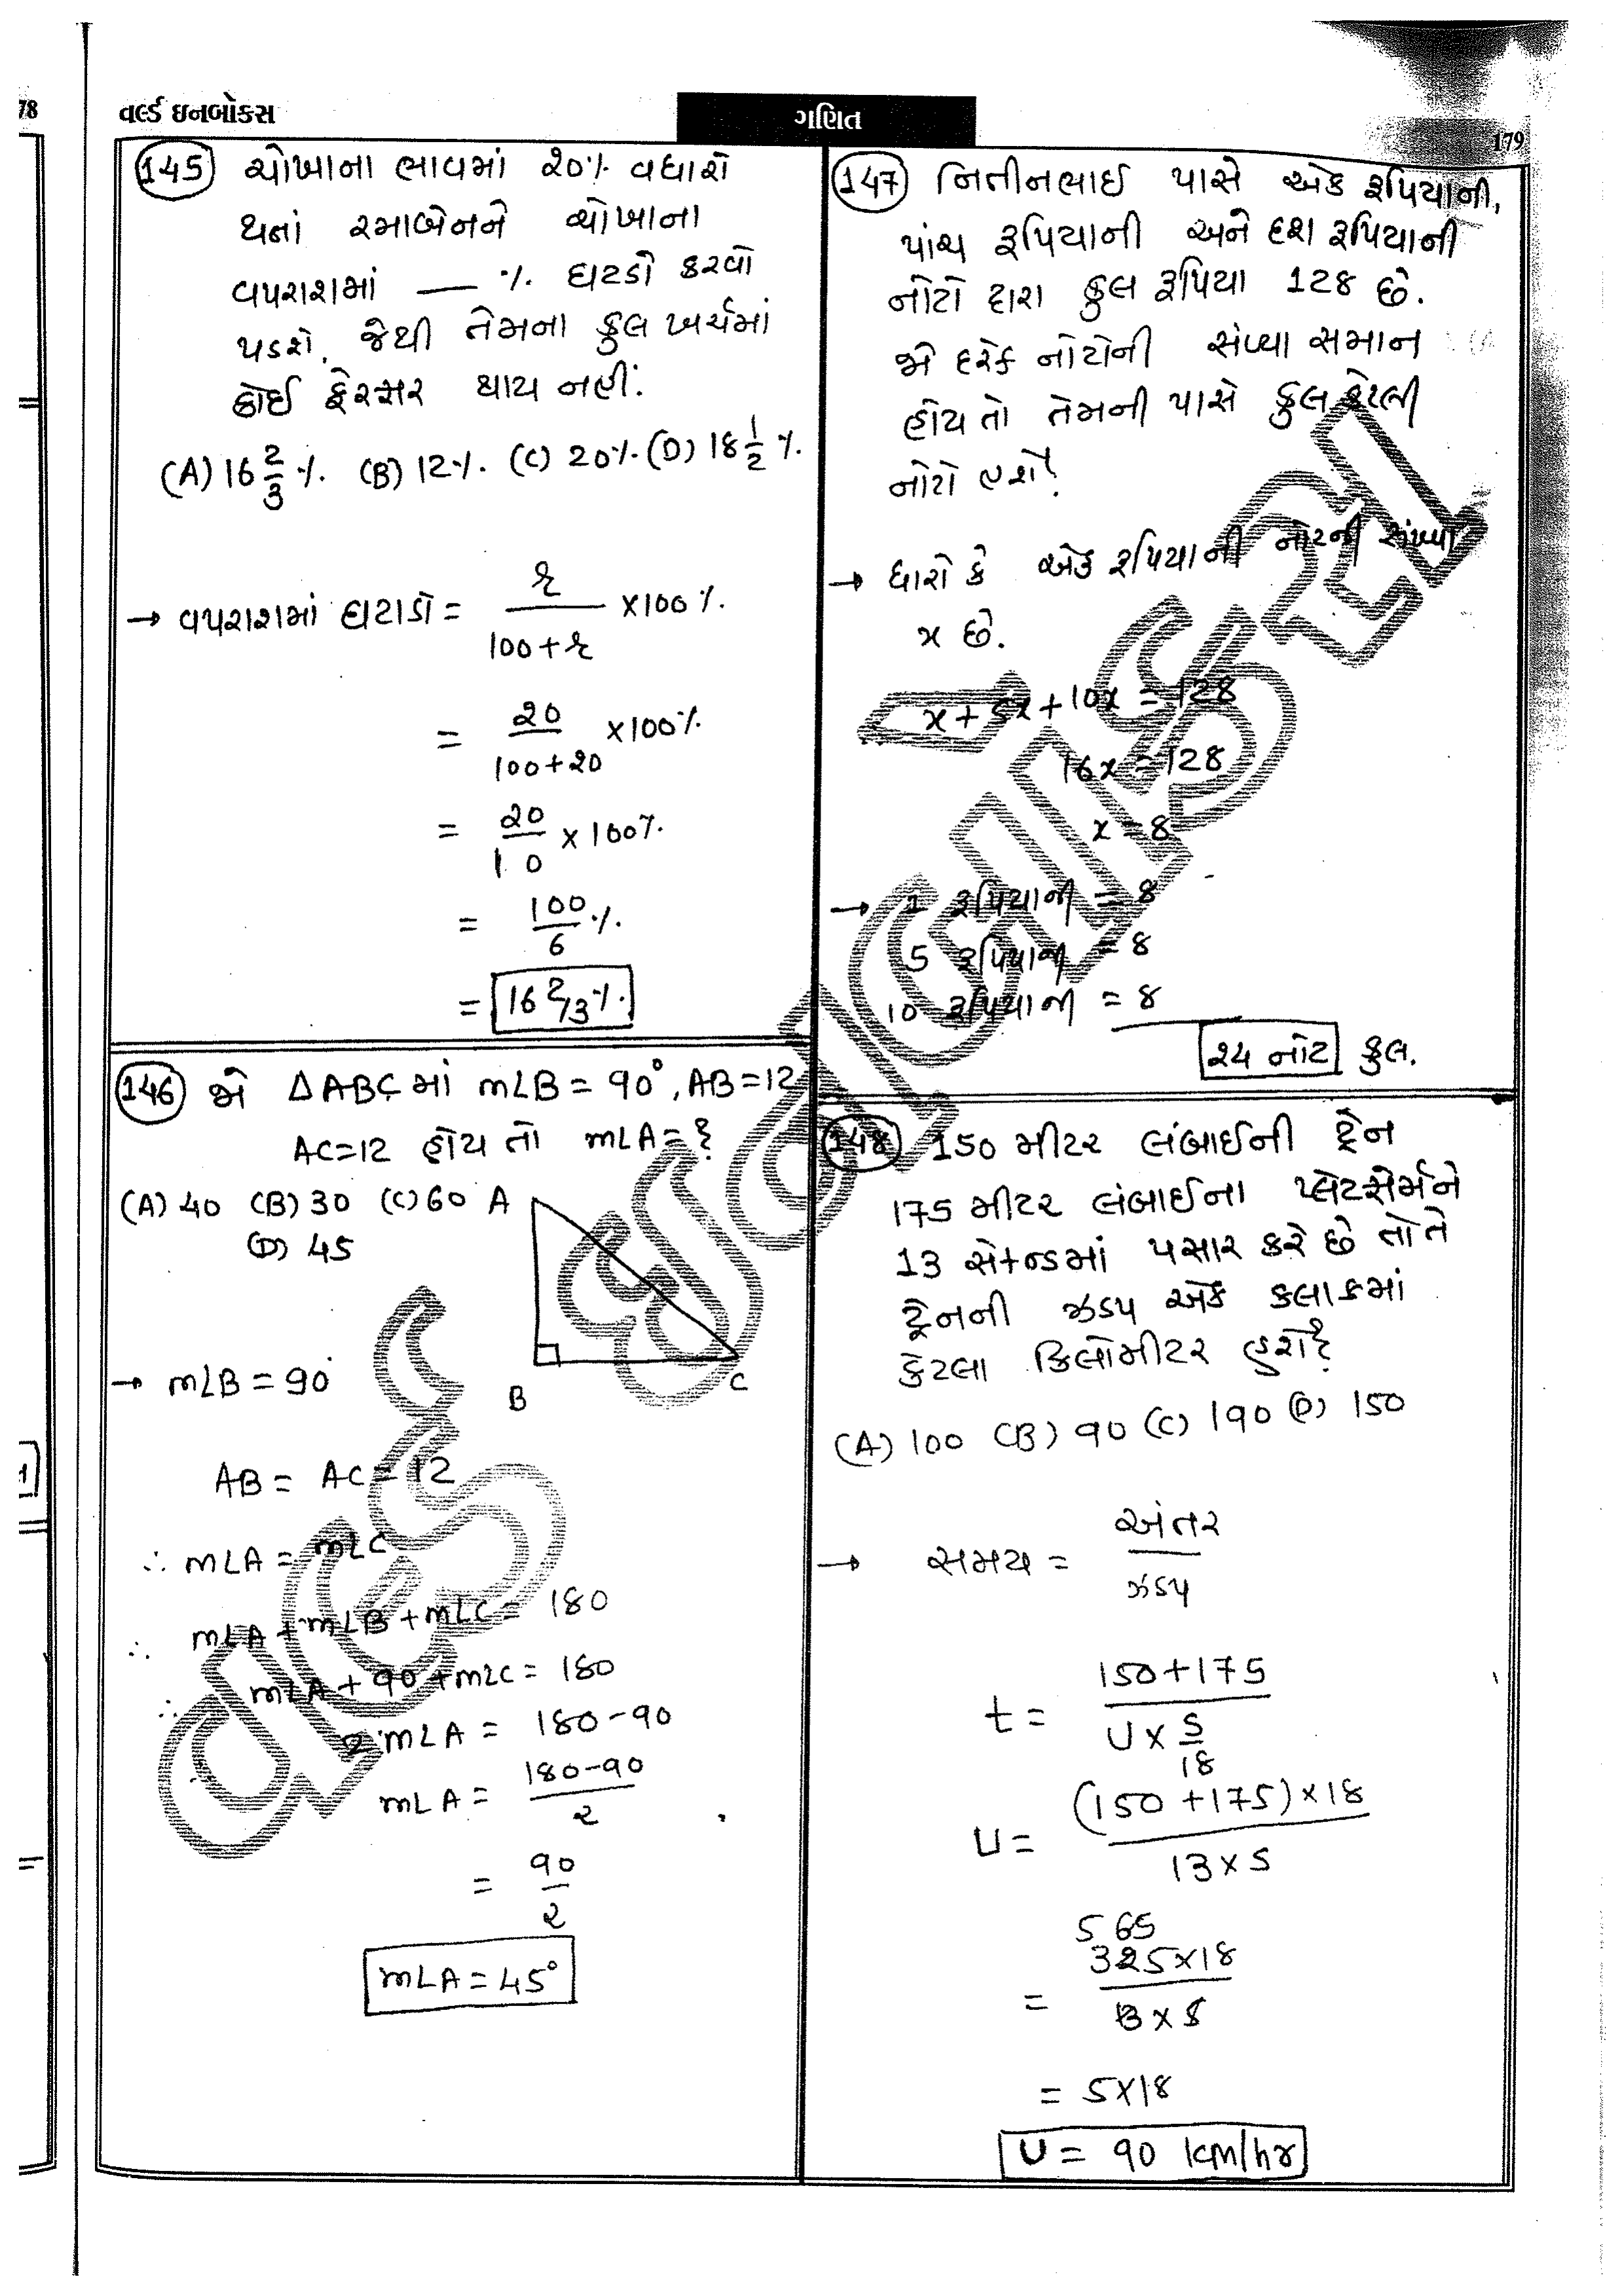 78
વર્લ્ડ ઇનબોક્સ
ગણિત
179
145 ચોખાના ભાવમાં 20% વધારો
થતાં રમાબેનને ચોખાના
વપરાશમાં — % ઘટડો કરવો
પડશે, જેથી તેમના કુલ ખર્ચમાં
કોઈ ફેરફાર થાય નહીં.
(A) 16 2/3 % (B) 12% (C) 20% (D) 18 1/2 %
→ વપરાશમાં ઘટાડો = r/(100+r) ×100 %
= 20/(100+20) ×100%
= 20/1 0 ×100%
= 100/6 %
= 16 2/3 %
146 જો ΔABC માં m∠B = 90°, AB=12
AC=12 હોય તો m∠A=?
(A) 40 (B) 30 (C) 60
(D) 45
A
B
C
→ m∠B = 90°
AB = AC = 12
∴ m∠A = m∠C
∴ m∠A + m∠B + m∠C = 180
∴ m∠A + 90 + m∠C = 180
2 m∠A = 180-90
m∠A = (180-90)/2
= 90/2
m∠A = 45°
147 નિતીનભાઈ પાસે એક રૂપિયાની,
પાંચ રૂપિયાની અને દશ રૂપિયાની
નોટો દ્વારા કુલ રૂપિયા 128 છે.
જો દરેક નોટોની સંખ્યા સમાન
હોય તો તેમની પાસે કુલ કેટલી
નોટો હશે?
→ ધારો કે એક રૂપિયાની નોટની સંખ્યા
x છે.
x + 5x + 10x = 128
16x = 128
x = 8
→ 1 રૂપિયાની = 8
5 રૂપિયાની = 8
10 રૂપિયાની = 8
24 નોટ કુલ.
148 150 મીટર લંબાઈની ટ્રેન
175 મીટર લંબાઈના પ્લેટફોર્મને
13 સેકન્ડમાં પસાર કરે છે તો તે
ટ્રેનની ઝડપ એક કલાકમાં
કેટલા કિલોમીટર હશે?
(A) 100 (B) 90 (C) 190 (D) 150
→ સમય = અંતર/ઝડપ
t = (150+175)/(U × 5/18)
U = (150+175)×18/(13×5)
5 65
= 325×18/(13×5)
= 5×18
U = 90 km/hr